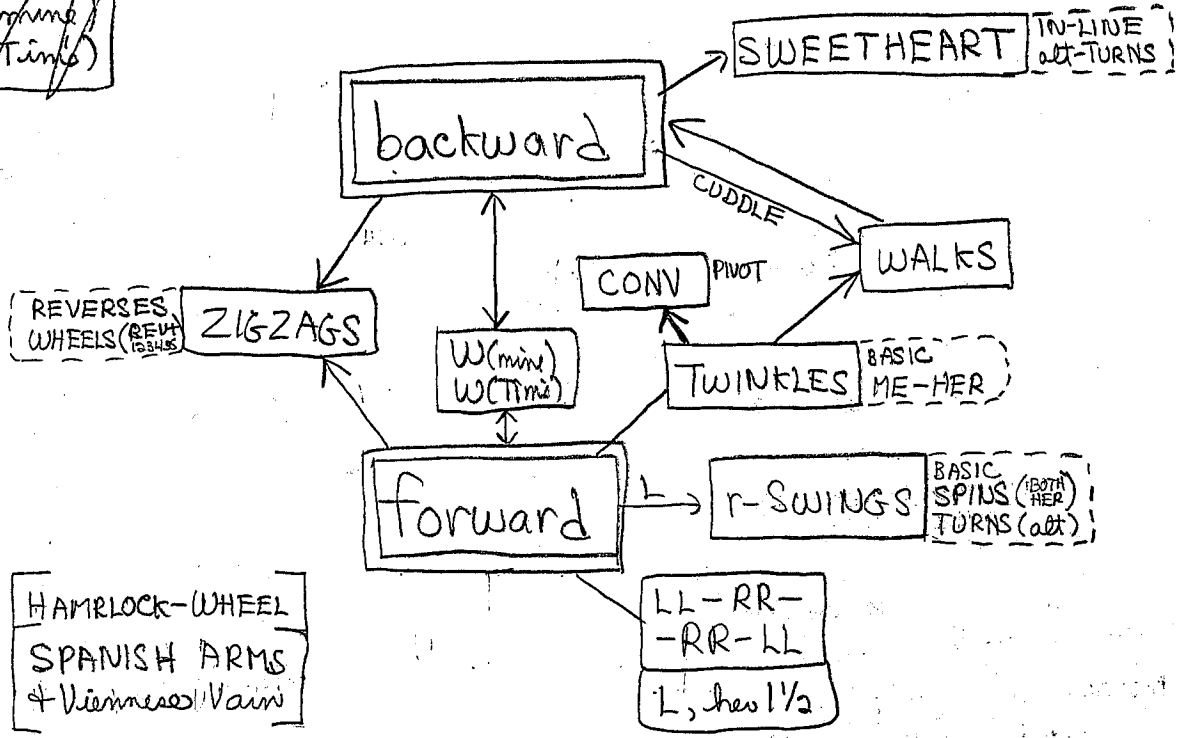 mine)
Tim's)
SWEETHEART
IN-LINE
alt-TURNS
backward
CUDDLE
WALKS
CONV
PIVOT
REVERSES
WHEELS (REV4
1234.85
ZIGZAGS
W(mine)
W(Tim's)
TWINKLES
BASIC
ME-HER
forward
L
r-SWINGS
BASIC
SPINS (BOTH
HER)
TURNS (alt)
HAMRLOCK-WHEEL
SPANISH ARMS
+ Viennese
LL-RR-
-RR-LL
L, her 1½